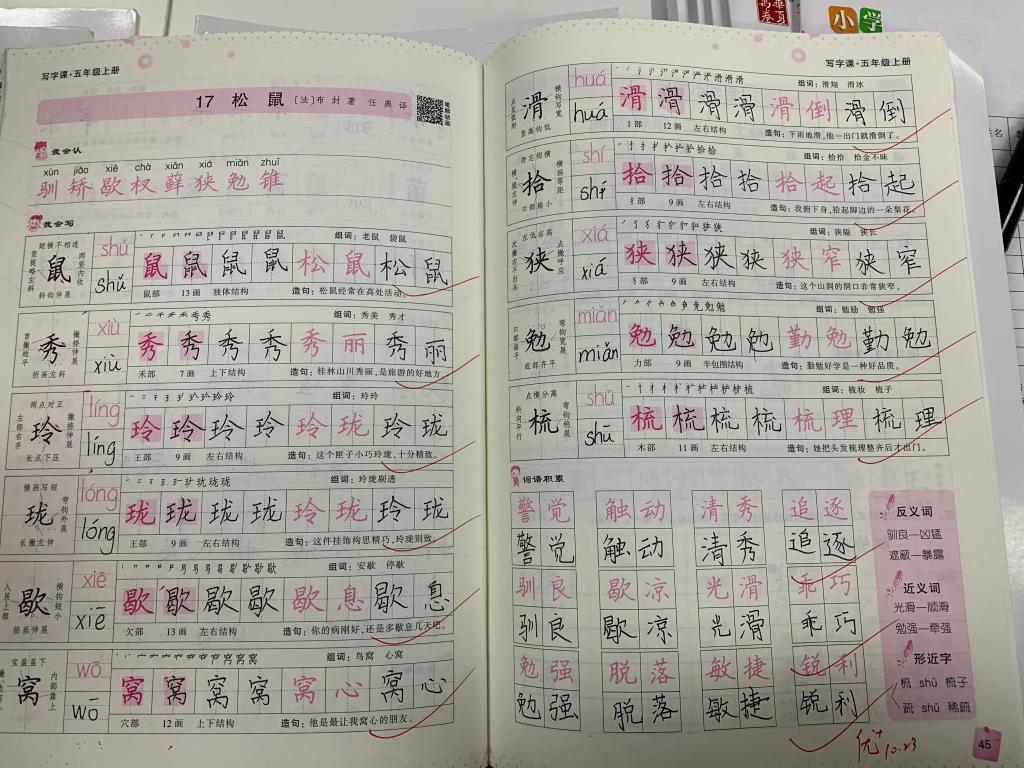 写字课·五年级上册
17 松 鼠 [法]布 封 著 任 典 译
我会认
xùn jiǎo xiē chà xiǎn xiá miǎn zhuī
驯 矫 歇 杈 藓 狭 勉 锥
我会写
短横不相连 竖提略左斜 两竖内收 斜钩伸展
鼠 shǔ 组词：老鼠 袋鼠
shǔ 鼠 鼠 鼠 鼠 松 鼠 松 鼠
鼠部 13画 独体结构 造句：松鼠经常在高处活动。
首撇短平 撇捺伸展 折画左斜
秀 xiù 组词：秀美 秀才
xiù 秀 秀 秀 秀 秀 丽 秀 丽
禾部 7画 上下结构 造句：桂林山川秀丽，是旅游的好地方
两点对正 左部右齐 撇捺伸展 长点下压
玲 líng 组词：玲玲
líng 玲 玲 玲 玲 玲 珑 玲 珑
王部 9画 左右结构 造句：这个匣子小巧玲珑，十分精致。
横画写短 弯钩外展 长撇左伸
珑 lóng 组词：玲珑剔透
lóng 珑 珑 珑 珑 玲 珑 玲 珑
王部 9画 左右结构 造句：这件挂饰构思精巧，玲珑别致。
人居上部 横钩短小 捺画伸展
歇 xiē 组词：安歇 停歇
xiē 歇 歇 歇 歇 歇 息 歇 息
欠部 13画 左右结构 造句：你的病刚好，还是多歇息几天吧。
宝盖盖下 内部靠上
窝 wō 组词：鸟窝 心窝
wō 窝 窝 窝 窝 窝 心 窝 心
穴部 12画 上下结构 造句：他是最让我窝心的朋友。
写字课·五年级上册
点呈弧形 横钩写宽 竖高钩低
滑 huá 组词：滑翔 滑冰
huá 滑 滑 滑 滑 滑 倒 滑 倒
氵部 12画 左右结构 造句：下雨地滑，他一出门就滑倒了。
勿忘短横 横、提左伸 横画等距 口部扁小
拾 shí 组词：捡拾 拾金不昧
shí 拾 拾 拾 拾 拾 起 拾 起
扌部 9画 左右结构 造句：我俯下身，拾起脚边的一朵梨花。
左低右高 次撇不出头 点撇呼应
狭 xiá 组词：狭隘 狭长
xiá 狭 狭 狭 狭 狭 窄 狭 窄
犭部 9画 左右结构 造句：这个山洞的洞口非常狭窄。
口部扁平 弯钩宽展 底部齐平
勉 miǎn 组词：勉励 勉强
miǎn 勉 勉 勉 勉 勤 勉 勤 勉
力部 9画 半包围结构 造句：勤勉好学是一种好品质。
点横分离 斜向平行 弯钩稍展
梳 shū 组词：梳妆 梳子
shū 梳 梳 梳 梳 梳 理 梳 理
木部 11画 左右结构 造句：她把头发梳理整齐后才出门。
词语积累
警觉 触动 清秀 追逐
警觉 触动 清秀 追逐
驯良 歇凉 光滑 乖巧
驯良 歇凉 光滑 乖巧
勉强 脱落 敏捷 锐利
勉强 脱落 敏捷 锐利
反义词
驯良—凶猛
遮蔽—暴露
近义词
光滑—顺滑
勉强—牵强
形近字
梳 shū 梳子
疏 shū 稀疏
优+ 10.23
45
小学